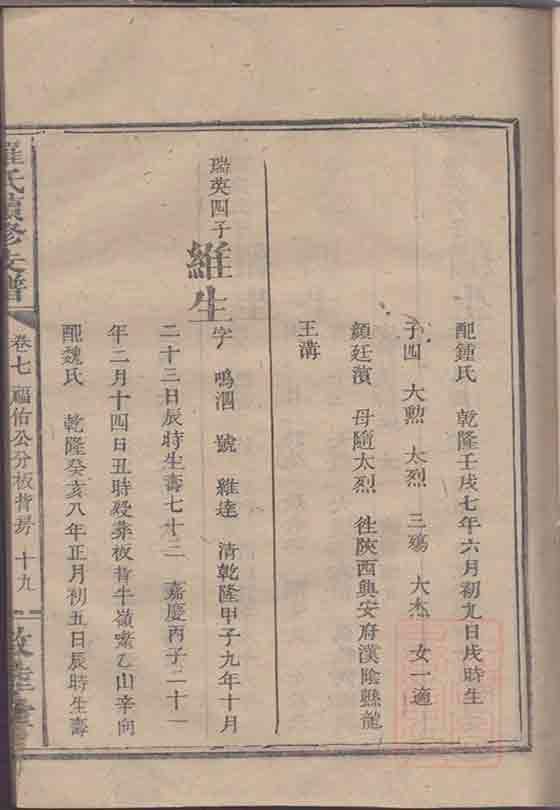 配鍾氏 乾隆壬戌七年六月初九日戌時生
子四 大勲 太烈 三殤 大杰 女一適
顔廷濱 母隨太烈 徃陝西興安府漢陰縣龍
王溝
瑞英四子
維生
字 鳴泗 號 維達 清乾隆甲子九年十月
二十三日辰時生壽七十三 嘉慶丙子二十一
年二月十四日丑時殁葬板背牛嶺嘴乙山辛向
配魏氏 乾隆癸亥八年正月初五日辰時生壽
羅氏續修支譜
卷七 福佑公分板背房 十九
敦